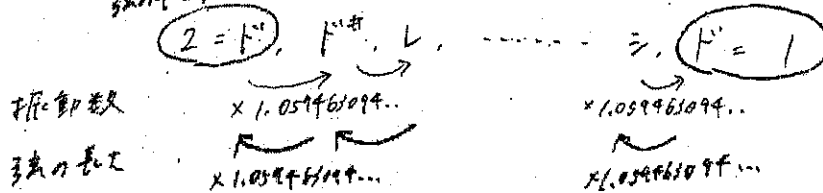 2 = ド, ド#, レ, ------- シ, ド = 1
振動数 ×1.059463094.. ×1.059463094..
弦の長さ ×1.059463094... ×1.059463094...